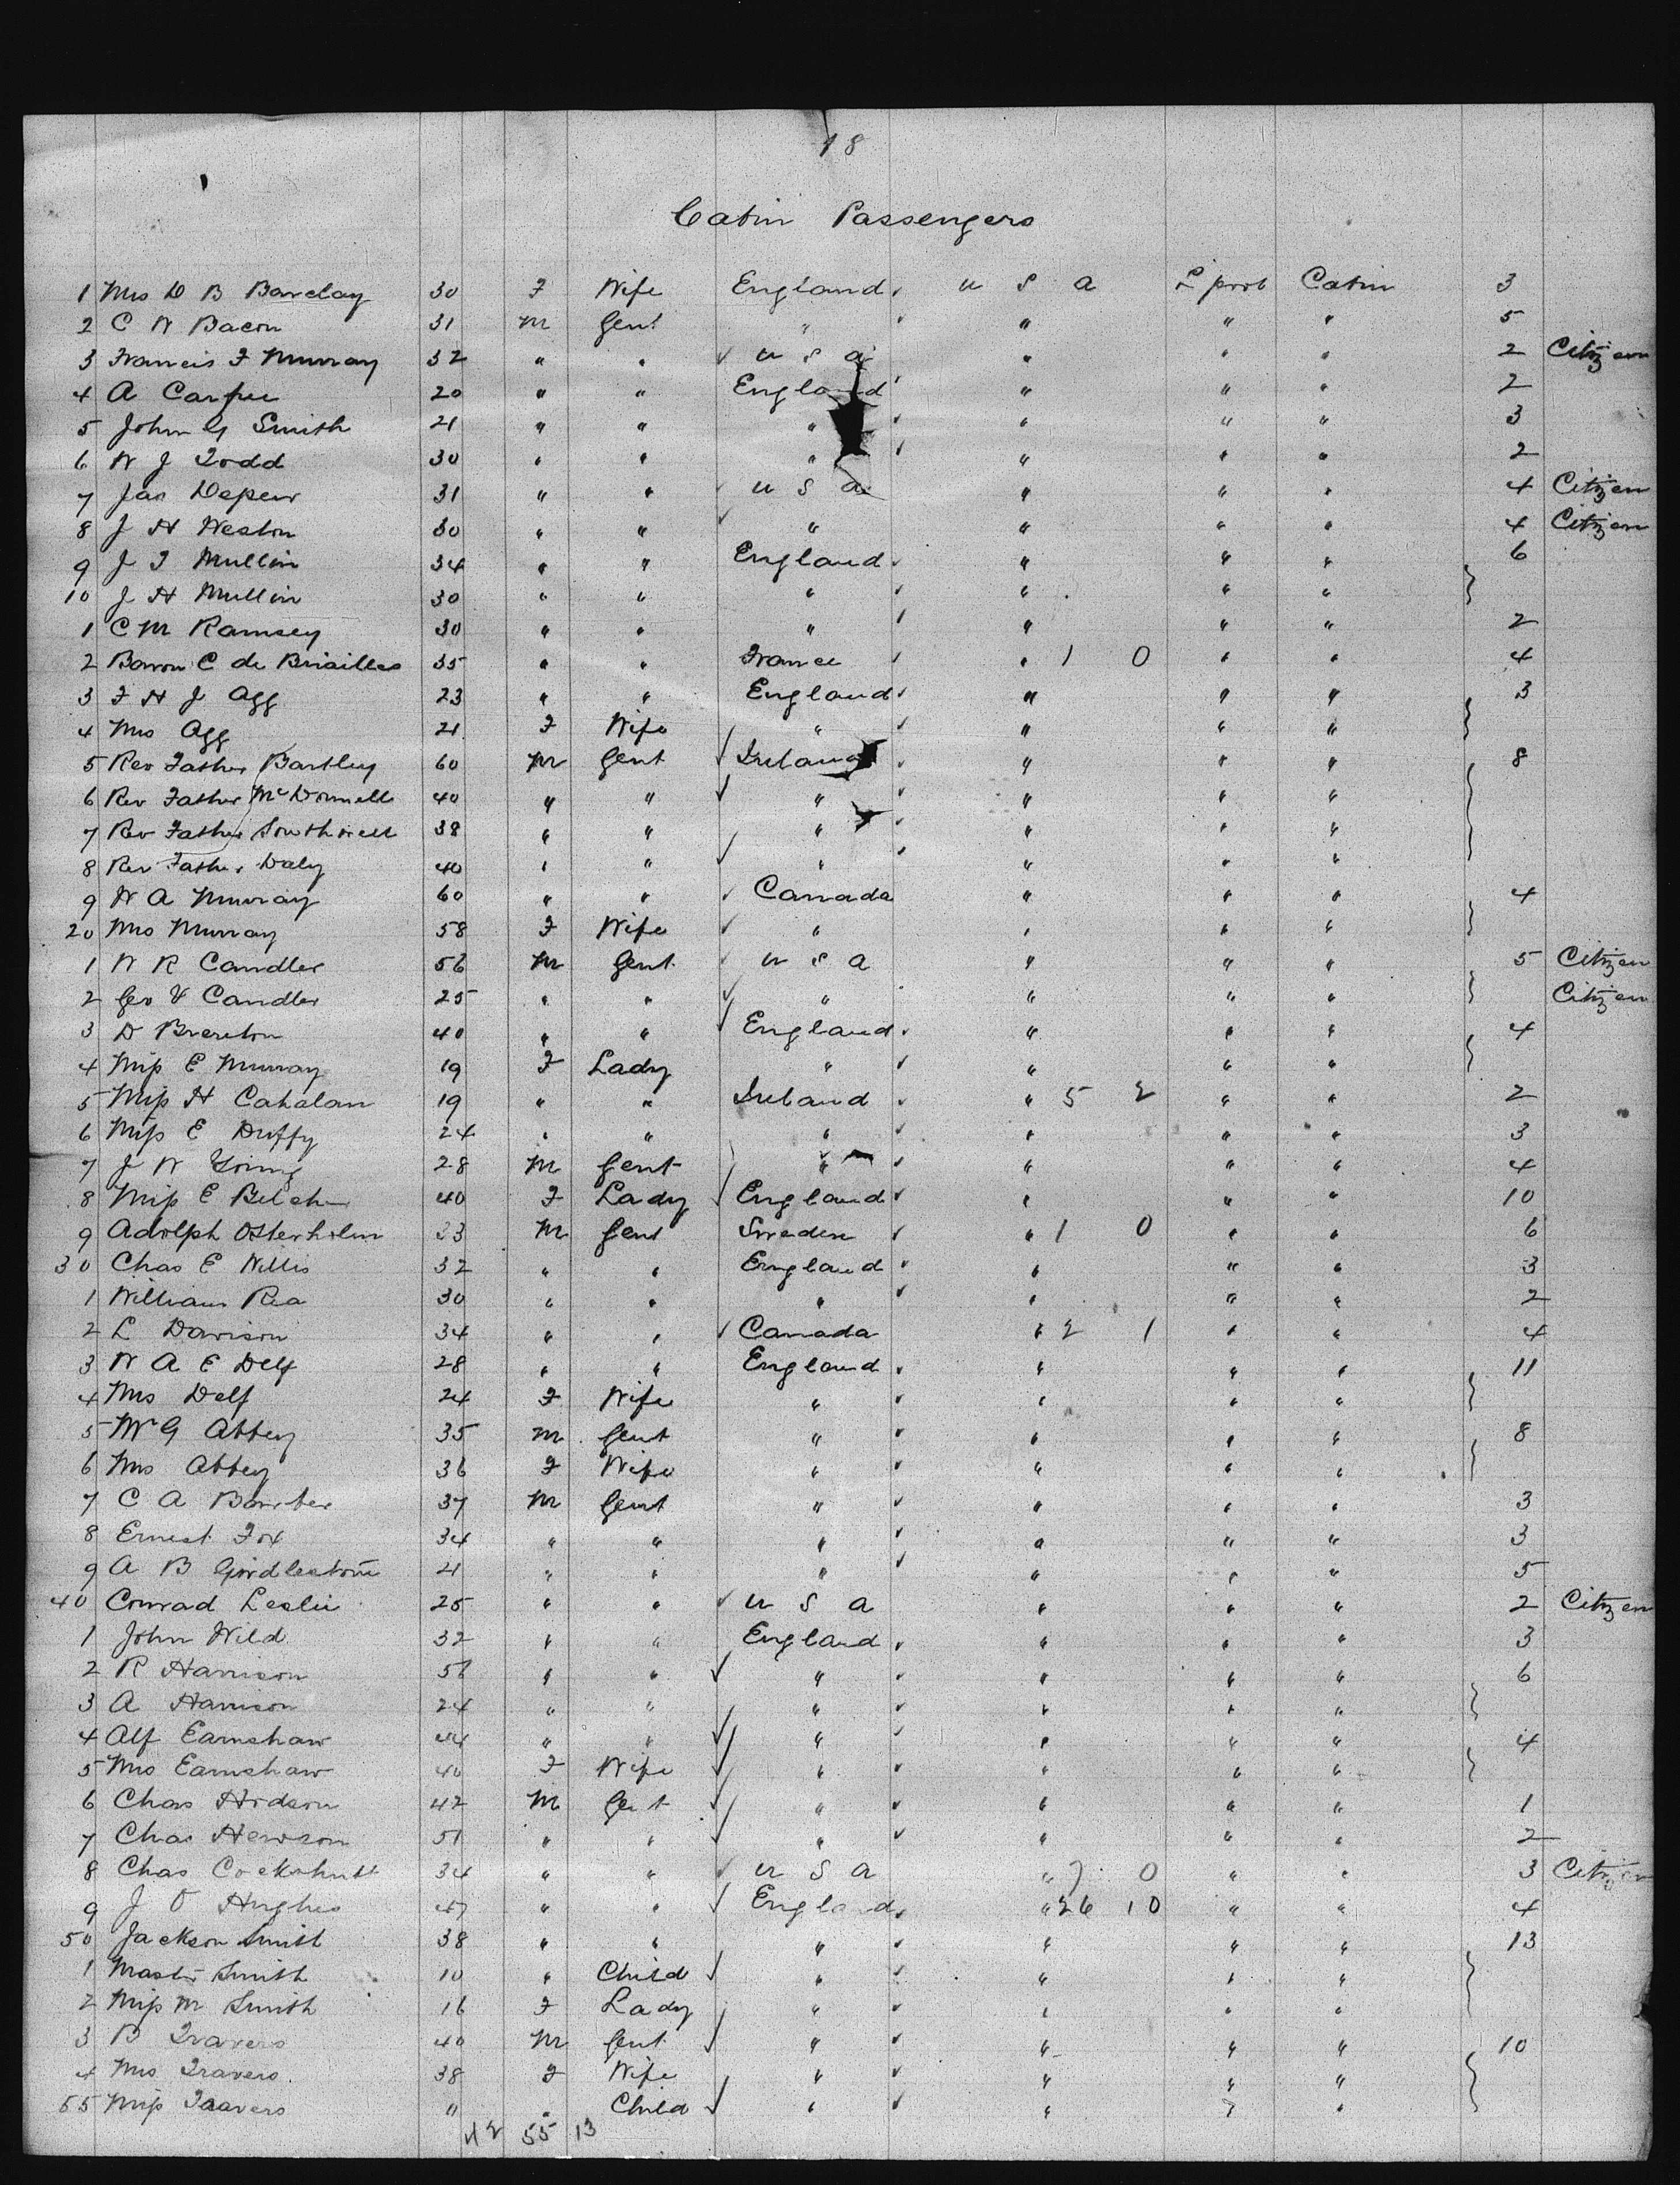 18
Cabin Passengers
1 Mrs D B Barclay 30 F Wife England U S A L'pool Cabin 3
2 C W Bacon 31 M Gent " " " " 5
3 Francis F Murray 32 " " U S A " " " 2 Citizen
4 A Carpue 20 " " England " " " 2
5 John G Smith 21 " " " " " " 3
6 W J Todd 30 " " " " " " 2
7 Jas Depew 31 " " U S A " " " 4 Citizen
8 J H Weston 30 " " " " " " 4 Citizen
9 J T Mullin 34 " " England " " " 6
10 J H Mullin 30 " " " " " " }
1 C M Ramsey 30 " " " " " " 2
2 Baron C de Briailles 35 " " France " 1 0 " " 4
3 F H J Agg 23 " " England " " " 3
4 Mrs Agg 21 F Wife " " " " }
5 Rev Father Bartley 60 M Gent Ireland " " " 8
6 Rev Father McDonnell 40 " " " " " "
7 Rev Father Southwell 38 " " " " " "
8 Rev Father Daly 40 " " " " " "
9 W A Murray 60 " " Canada " " " 4
20 Mrs Murray 58 F Wife " " " " }
1 W R Candler 56 M Gent U S A " " " 5 Citizen
2 Geo V Candler 25 " " " " " " } Citizen
3 D Brereton 40 " " England " " " 4
4 Miss E Murray 19 F Lady " " " " }
5 Miss H Cahalan 19 " " Ireland " 5 2 " " 2
6 Miss E Duffy 24 " " " " " " 3
7 J W Young 28 M Gent " " " " 4
8 Miss E Belch 40 F Lady England " " " 10
9 Adolph Osterholm 23 M Gent Sweden " 1 0 " " 6
30 Chas E Willis 32 " " England " " " 3
1 William Rea 30 " " " " " " 2
2 L Davison 34 " " Canada " 2 1 " " 4
3 W A E Delf 28 " " England " " " 11
4 Mrs Delf 24 F Wife " " " " }
5 W G Abbey 35 M Gent " " " " 8
6 Mrs Abbey 36 F Wife " " " " }
7 C A Barber 37 M Gent " " " " 3
8 Ernest Fox 34 " " " " " " 3
9 A B Girdlestone 21 " " " " " " 5
40 Conrad Leslie 25 " " U S A " " " 2 Citizen
1 John Wild 32 " " England " " " 3
2 R Harrison 56 " " " " " " 6
3 A Harrison 24 " " " " " " }
4 Alf Earnshaw 44 " " " " " " 4
5 Mrs Earnshaw 40 F Wife " " " " }
6 Chas Hodson 42 M Gent " " " " 1
7 Chas Hewson 51 " " " " " " 2
8 Chas Cockshutt 34 " " U S A " 7 0 " " 3 Citizen
9 J O Hughes 47 " " England " 26 10 " " 4
50 Jackson Smith 38 " " " " " " 13
1 Master Smith 10 " Child " " " "
2 Miss M Smith 16 F Lady " " " "
3 B Travers 40 M Gent " " " " 10
4 Mrs Travers 38 F Wife " " " "
55 Miss Travers 11 " Child " " " "
42 55 13